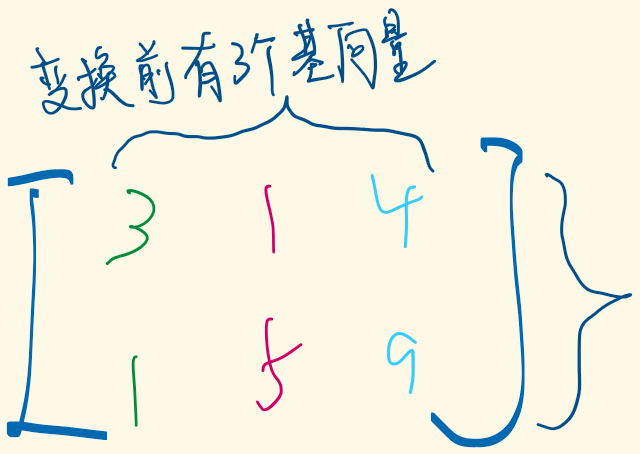 变换前有3个基向量
3 1 4
1 5 9